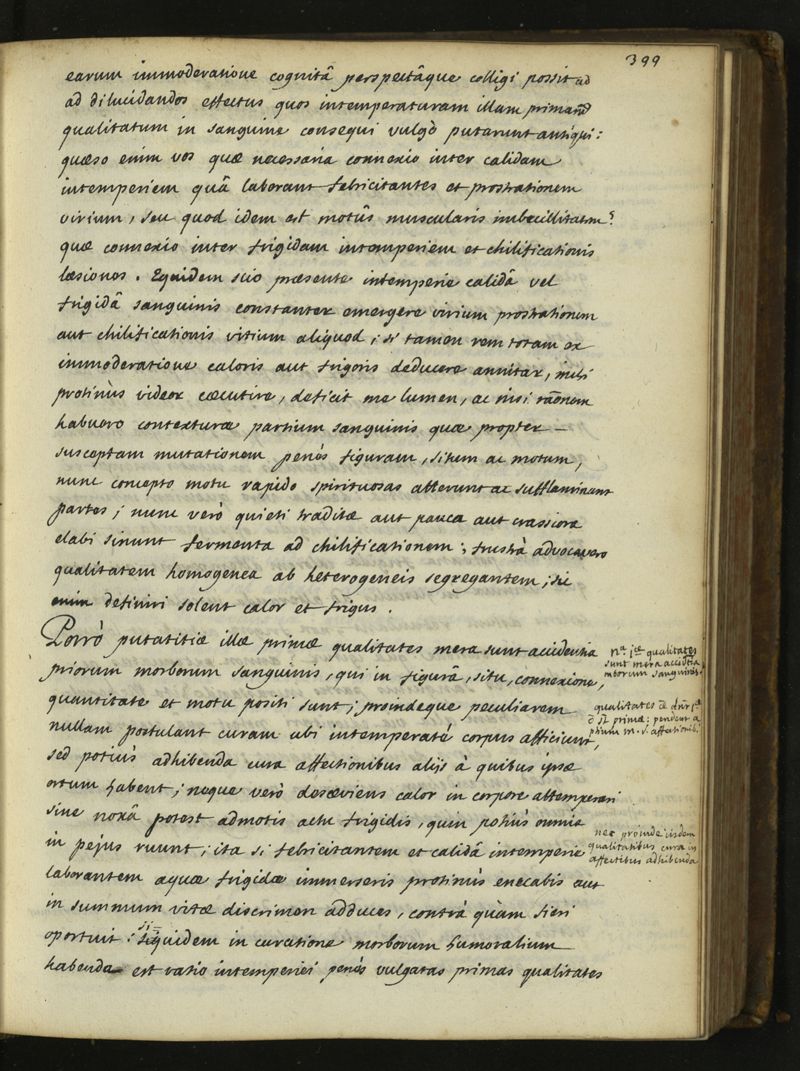 399
earum immoderatione cognitâ perspectâque colligi possit ad
ad dilucidandos effectus quos intemperaturam illam primarū
qualitatum in sanguine consequi vulgò putarunt antiqui:
quæso enim vos quæ necessaria connexio inter calidam
intemperiem quâ laborant febricitantes et prostrationem
virium, seu quod idem est motûs muscularis imbecillitatem?
quæ connexio inter frigidam intemperiem et chilificationis
læsiones. Equidem scio præsente intemperie calidâ vel
frigidâ sanguinis constanter emergere virium prostrationem
aut chilificationis vitium aliquod; si tamen rem totam ex
immoderatione caloris aut frigoris deducere annitar, mihi
protinùs videor cæcutire, deficit me lumen, ac nisi raōnem
habuero contexturæ partium sanguinis quæ propter –
susceptam mutationem penés figuram, situm ac motum,
nunc concepto motu rapido spirituosas atterunt ac sufflaminant
partes; nunc verò quieti traditæ aut pauca aut crassiora
elabi sinunt fermenta ad chilificationem; frustrà advocavero
qualitatem homogenea ab heterogeneis segregantem; sic
enim definiri solent calor et frigus.
Porrò putatitiæ illæ primæ qualitates mera sunt accidentia
priorum morborum sanguinis, qui in figurâ, situ, connexione,
quantitate et motu positi sunt; proindeque peculiarem
nullam postulant curam ubi intemperaté corpus afficiunt,
sed potiùs adhibenda cura affectionibus alijs à quibus ipsæ
ortum habent; neque verò desæviens calor in corpore attemperari
sine noxâ potest admotis actu frigidis, quin potiùs omnia
in pejus ruunt; ita si febricitantem et calidâ intemperie
laborantem aquæ frigidæ immerseris protinùs enecabis aut
in summum vitæ discrimen adduces, contrà quàm fieri
oportuit: siquidem in curatione morborum humoralium
habenda est ratio intemperiei penés vulgatas primas qualitates
qualitates
sunt mera accidētia
mborum sanguinis.
qualitates
primæ: pendent a
affectionib.
nec proinde iisdem
qualitatibus cura in
affectibus adhibenda